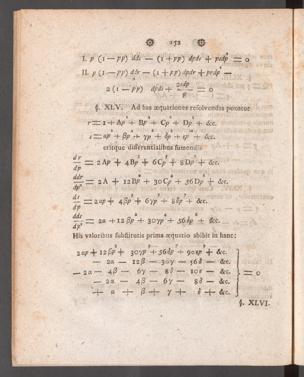 152
I. p (1 — pp) dds — (1+pp) dpds + psdp² = 0
II. p (1 — pp) ddr — (1+pp) dpdr + prdp² —
2 (1 — pp) dpds + 2sdp²/p = 0
§. XLV. Ad has æquationes resolvendas ponatur
r = 1 + Ap² + Bp⁴ + Cp⁶ + Dp⁸ + &c.
s = αp² + βp⁴ + γp⁶ + δp⁸ + εp¹⁰ + &c.
eritque differentialibus sumendis
dr/dp = 2Ap + 4Bp³ + 6Cp⁵ + 8Dp⁷ + &c.
ddr/dp² = 2A + 12Bp² + 30Cp⁴ + 56Dp⁶ + &c.
ds/dp = 2αp + 4βp³ + 6γp⁵ + 8δp⁷ + &c.
dds/dp² = 2α + 12βp² + 30γp⁴ + 56δp⁶ + &c.
His valoribus substitutis prima æquatio abibit in hanc:
2αp + 12βp³ + 30γp⁵ + 56δp⁷ + 90εp⁹ + &c.
— 2α — 12β — 30γ — 56δ — &c.
— 2α — 4β — 6γ — 8δ — 10ε — &c.
— 2α — 4β — 6γ — 8δ — &c.
+ α + β + γ + δ + &c.
= 0
§. XLVI.